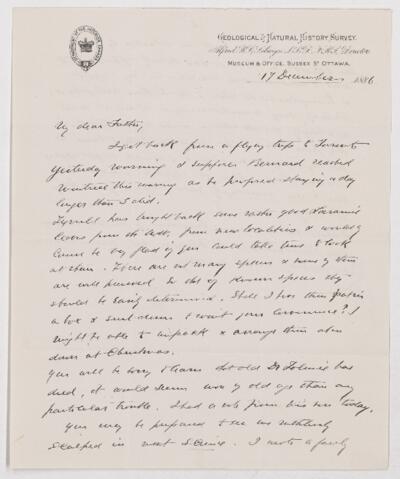 GEOLOGICAL & NATURAL HISTORY SURVEY.
Alfred R. C. Selwyn, L.L.D., F.R.S., Director
MUSEUM & OFFICE, SUSSEX St OTTAWA,
17 December 1886
My dear Father,
I got back from a flying trip to Toronto
yesterday morning & suppose Bernard reached
Montreal this morning as he proposed staying a day
longer than I did.
Tyrrell has brought back some rather good Laramie
leaves from the , from new localities & would
be very glad if you could take time to look
at them. There are not many species & many of them
are well preserved so that if known species they
should be easily determined. Shall I have them packed in
a box & sent down to await your convenience? I
might be able to unpack & arrange them when
down at Christmas.
You will be sorry to learn that old Dr Tolmie has
died, it would seem more of old age than any
particular trouble. I had a note from his son today.
You may be prepared to see me
scalped in next Science. I wrote a fairly